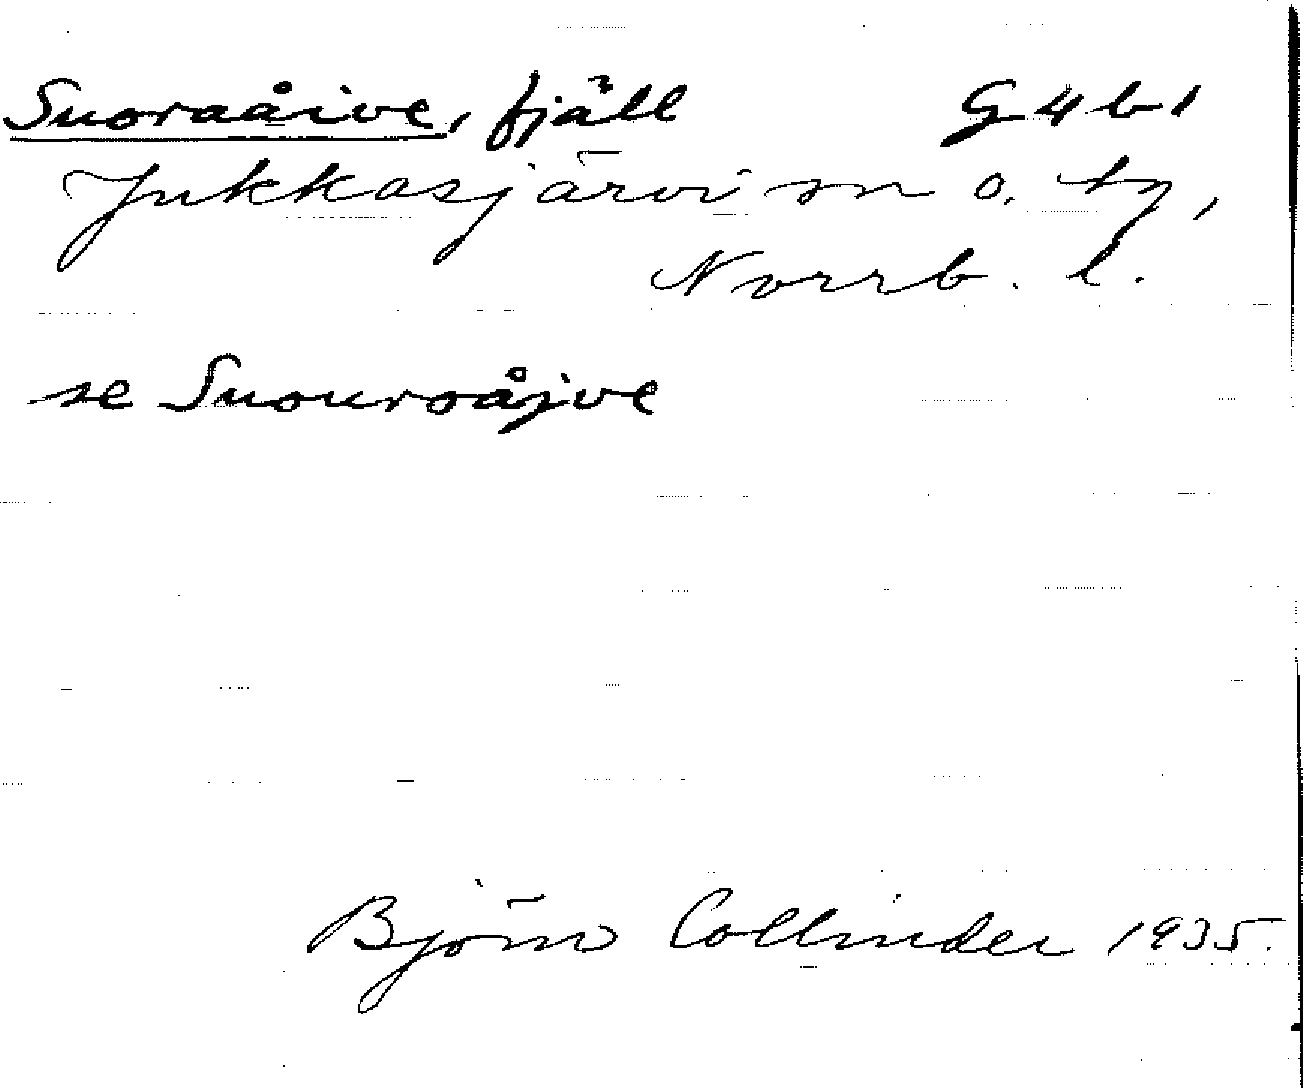 Suoraåive, fjäll G4b1
Jukkasjärvi sn o. tg,
Norrb. l.
se Suouroåjve
Björn Collinder 1935.